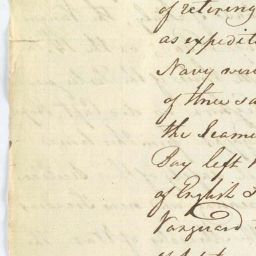 of retiring
as expedit
Navy wer
of three sa
the Seame
Bay left
of English
Vanguard